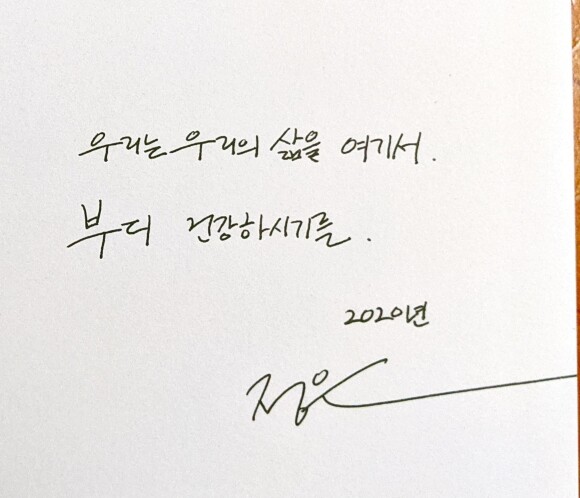 우리는 우리의 삶을 여기서.
부디 건강하시기를.
2020년